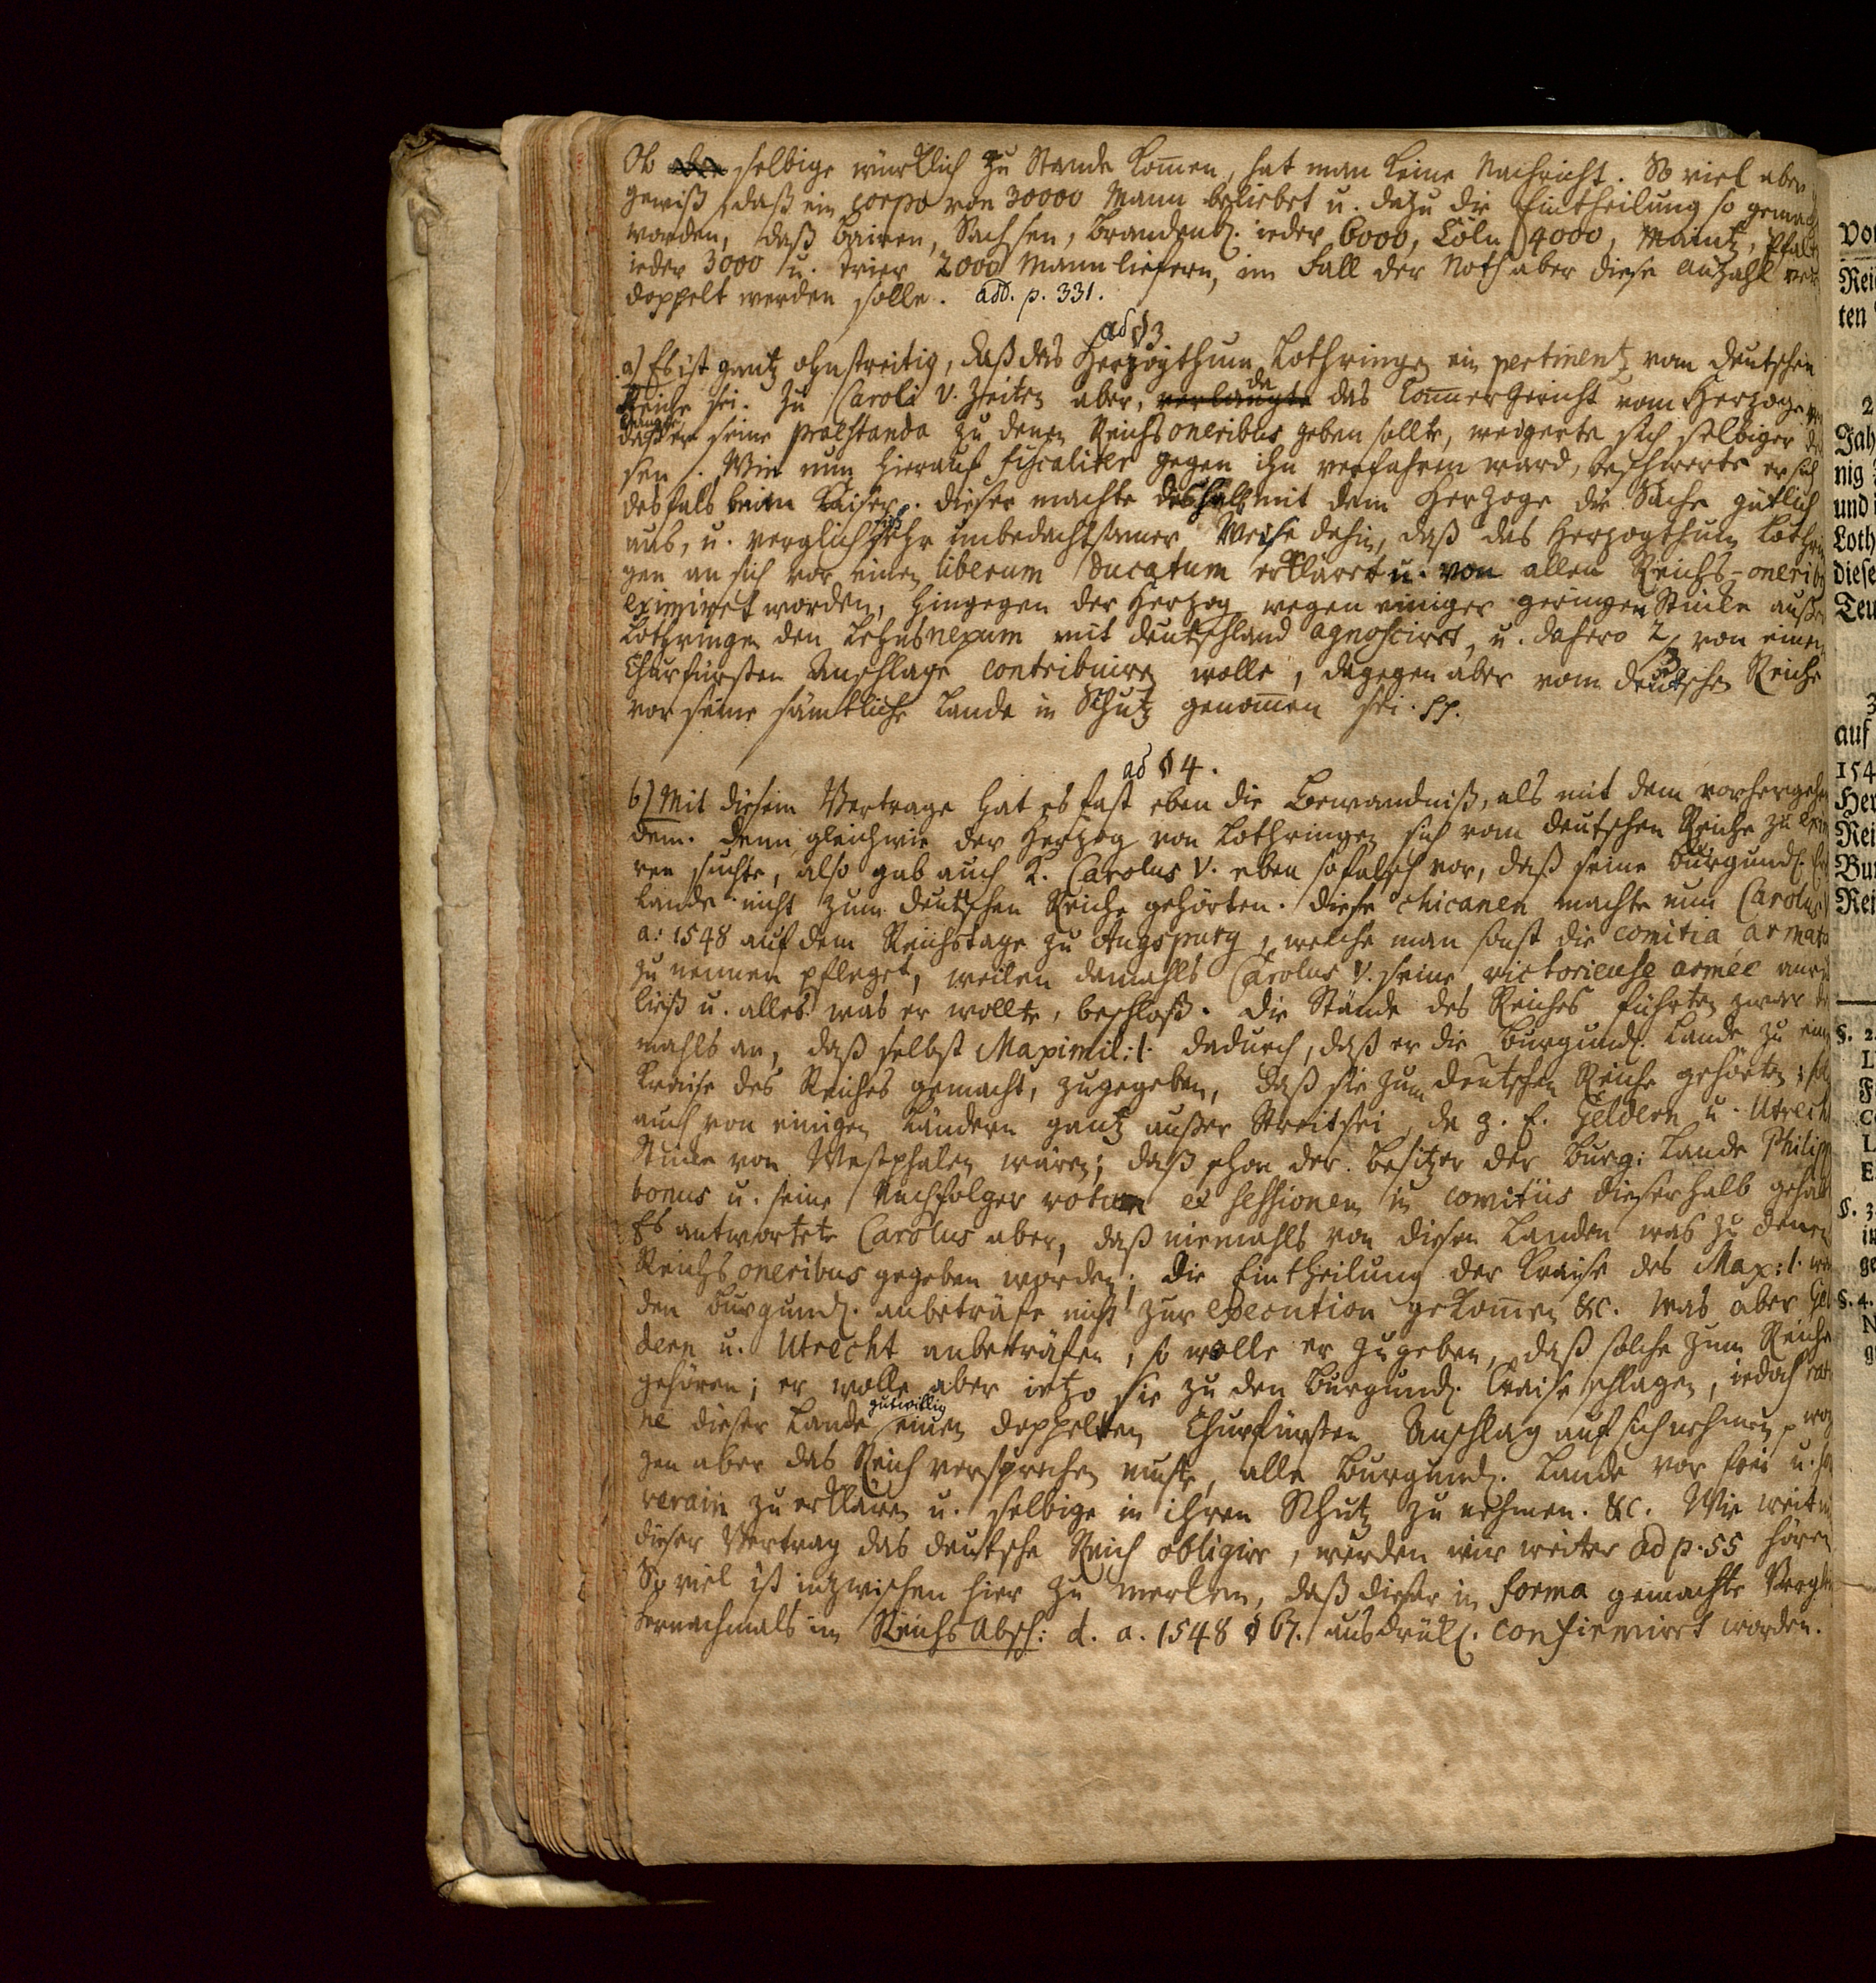 Ob selbige würklich zu Stande kommen, hat man keine Nachricht. So viel aber
gewiß, daß ein corpo von 30000 Mann beliebet u. dazu die Eintheilung so gemac
worden, daß Baiern, Sachsen, Brandenb. ieder 6000, Cöln 4000, Maintz, Pfaltz
ieder 3000 u. Trier 2000 Mann liefern, im Fall der Noth aber diese Anzahl ver
doppelt werden solle. add. p. 331.
ad § 3
a) Es ist gantz ohnstreitig, daß das Herzogthum Lothringen ein pertinentz vom deutschen
Reiche sei. Zu Caroli V. Zeiten aber, da das CammerGericht vom Herzoge ver
langte daß er seine praestanda zu denen Reichs oneribus geben sollte, weigerte sich selbiger des
sen. Wie nun hierauf fiscaliter gegen ihn verfahren ward, beschwerte er sich
desfals beim Kaiser. Dieser machte deshalb mit dem Herzoge die Sache gütlich
aus, u. verglich sich sehr unbedachtsamer Weise dahin, daß das Herzogthum Lothrin
gen an sich vor einen liberum Ducatum erkläret u. von allen Reichs-onerib
eximiret worden, hingegen der Herzog wegen einiger geringen Stücke außer
Lothringen den Lehnsnexum mit Deutschland agnosciret, u. dahero 2/3 von einem
Churfürsten Anschlage contribuiren wolle, dagegen aber vom deutschen Reiche
vor seine sämtliche Lande in Schutz genommen sei. pp.
ad § 4.
b) Mit diesem Vertrage hat es fast eben die Bewandniß, als mit dem vorhergehen
dem. Denn gleichwie der Herzog von Lothringen sich vom deutschen Reiche zu exim
ren suchte, also gab auch K. Carolus V. eben so falsch vor, daß seine Burgund.
Lande nicht zum deutschen Reiche gehörten. Diese chicanen machte nun Carolus
a: 1548 auf dem Reichstage zu Augspurg, welche man sonst die comitia armata
zu nennen pfleget, weilen damahls Carolus V. seine victorieuse armée anrü
ließ u. alles was er wollte, beschloß. Die Stände des Reiches führten zwar da
mahls an, daß selbst Maximil: I. dadurch, daß er die Burgund. Lande zu einem
Kreise des Reiches gemacht, zugegeben, daß sie zum deutschen Reiche gehörten;
auch von einigen Ländern gantz außer Streit sei, da z. E. Geldern u. Utrecht
Stücke von Westphalen wären; daß schon der Besitzer der Burg: Lande Philipp
bonus u. seine Nachfolger votum et sessionem in comitiis dieserhalb gehabt
Es antwortete Carolus aber, daß niemahls von diesen Landen was zu denen
Reichs oneribus gegeben worden; die Eintheilung der Kreise des Max: I. was
den Burgund. anbeträfe nicht zur execution gekommen &c. Was aber Gel
dern u. Utrecht anbeträfen, so wolle er zugeben, daß solche zum Reiche
gehören; er wolle aber ietzo sie zu den Burgund. Kreise schlagen, iedoch ratio
ne dieser Lande gutwillig einen doppelten Churfürsten Anschlag auf sich nehmen, woge
gen aber das Reich versprechen muste, alle Burgund. Lande vor frei u. so
verain zu erklären u. selbige in ihren Schutz zu nehmen. &c. Wie weit
dieser Vertrag das deutsche Reich obligire, werden wir weiter ad p. 55 hören
So viel ist inzwischen hier zu merken, daß dieser in forma gemachte Vergl
hernachmals im Reichs Absch: d. a. 1548 § 67. ausdrükl. confirmiret worden.